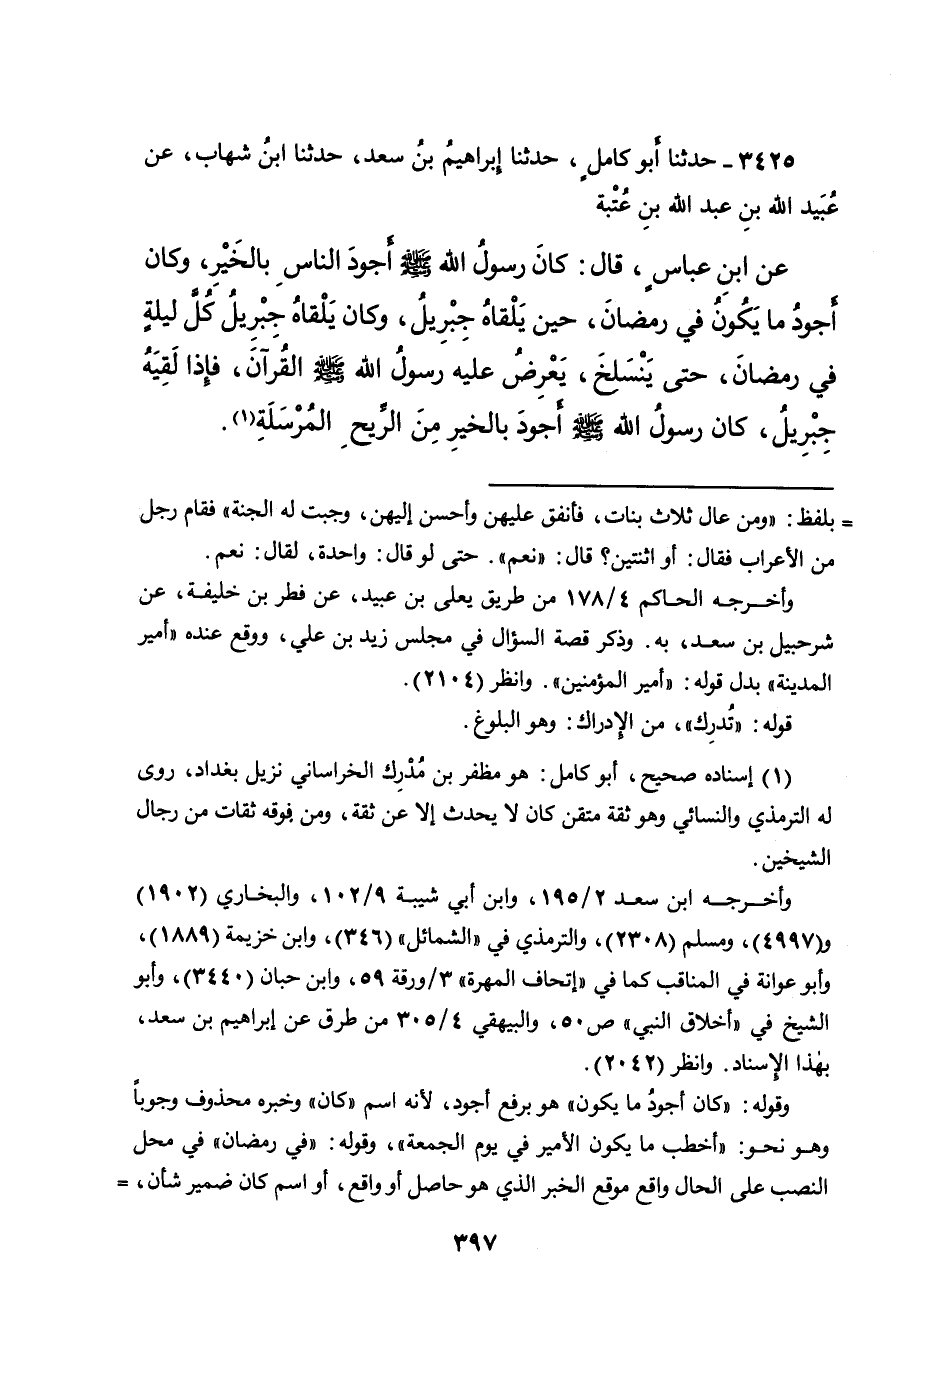 ٣٤٢٥ - حدثنا أَبو كاملٍ، حدثنا إِبراهيمُ بنُ سعد، حدثنا ابنُ شهاب، عن
عُبَيد الله بنِ عبد الله بنِ عُتْبة
عن ابنِ عباسٍ، قال: كانَ رسولُ الله ﷺ أَجودَ الناسِ بالخَيْرِ، وكان
أَجودُ ما يَكُونُ في رمضانَ، حين يَلْقاهُ جِبْرِيلُ، وكان يَلْقاهُ جِبْرِيلُ كُلَّ ليلةٍ
في رمضانَ، حتى يَنْسَلخَ، يَعْرِضُ عليه رسولُ الله ﷺ القُرآنَ، فإِذا لَقِيَهُ
جِبْرِيلُ، كان رسولُ الله ﷺ أَجودَ بالخيرِ مِنَ الرِّيحِ المُرْسَلَةِ(١).
= بلفظ: «ومن عال ثلاث بنات، فأنفق عليهن وأحسن إليهن، وجبت له الجنة» فقام رجل
من الأعراب فقال: أو اثنتين؟ قال: «نعم». حتى لو قال: واحدة، لقال: نعم.
وأخرجه الحاكم ١٧٨/٤ من طريق يعلى بن عبيد، عن فطر بن خليفة، عن
شرحبيل بن سعد، به. وذكر قصة السؤال في مجلس زيد بن علي، ووقع عنده «أمير
المدينة» بدل قوله: «أمير المؤمنين». وانظر (٢١٠٤).
قوله: «تُدرِك»، من الإِدراك: وهو البلوغ.
(١) إسناده صحيح، أبو كامل: هو مظفر بن مُدْرِك الخراساني نزيل بغداد، روى
له الترمذي والنسائي وهو ثقة متقن كان لا يحدث إلا عن ثقة، ومن فوقه ثقات من رجال
الشيخين.
وأخرجه ابن سعد ١٩٥/٢، وابن أبي شيبة ١٠٢/٩، والبخاري (١٩٠٢)
و(٤٩٩٧)، ومسلم (٢٣٠٨)، والترمذي في «الشمائل» (٣٤٦)، وابن خزيمة (١٨٨٩)،
وأبو عوانة في المناقب كما في «إتحاف المهرة» ٣/ورقة ٥٩، وابن حبان (٣٤٤٠)، وأبو
الشيخ في «أخلاق النبي» ص٥٠، والبيهقي ٣٠٥/٤ من طرق عن إبراهيم بن سعد،
بهٰذا الإِسناد. وانظر (٢٠٤٢).
وقوله: «كان أجودُ ما يكون» هو برفع أجود، لأنه اسم «كان» وخبره محذوف وجوباً
وهو نحو: «أخطب ما يكون الأمير في يوم الجمعة»، وقوله: «في رمضان» في محل
النصب على الحال واقع موقع الخبر الذي هو حاصل أو واقع، أو اسم كان ضمير شأن، =
٣٩٧